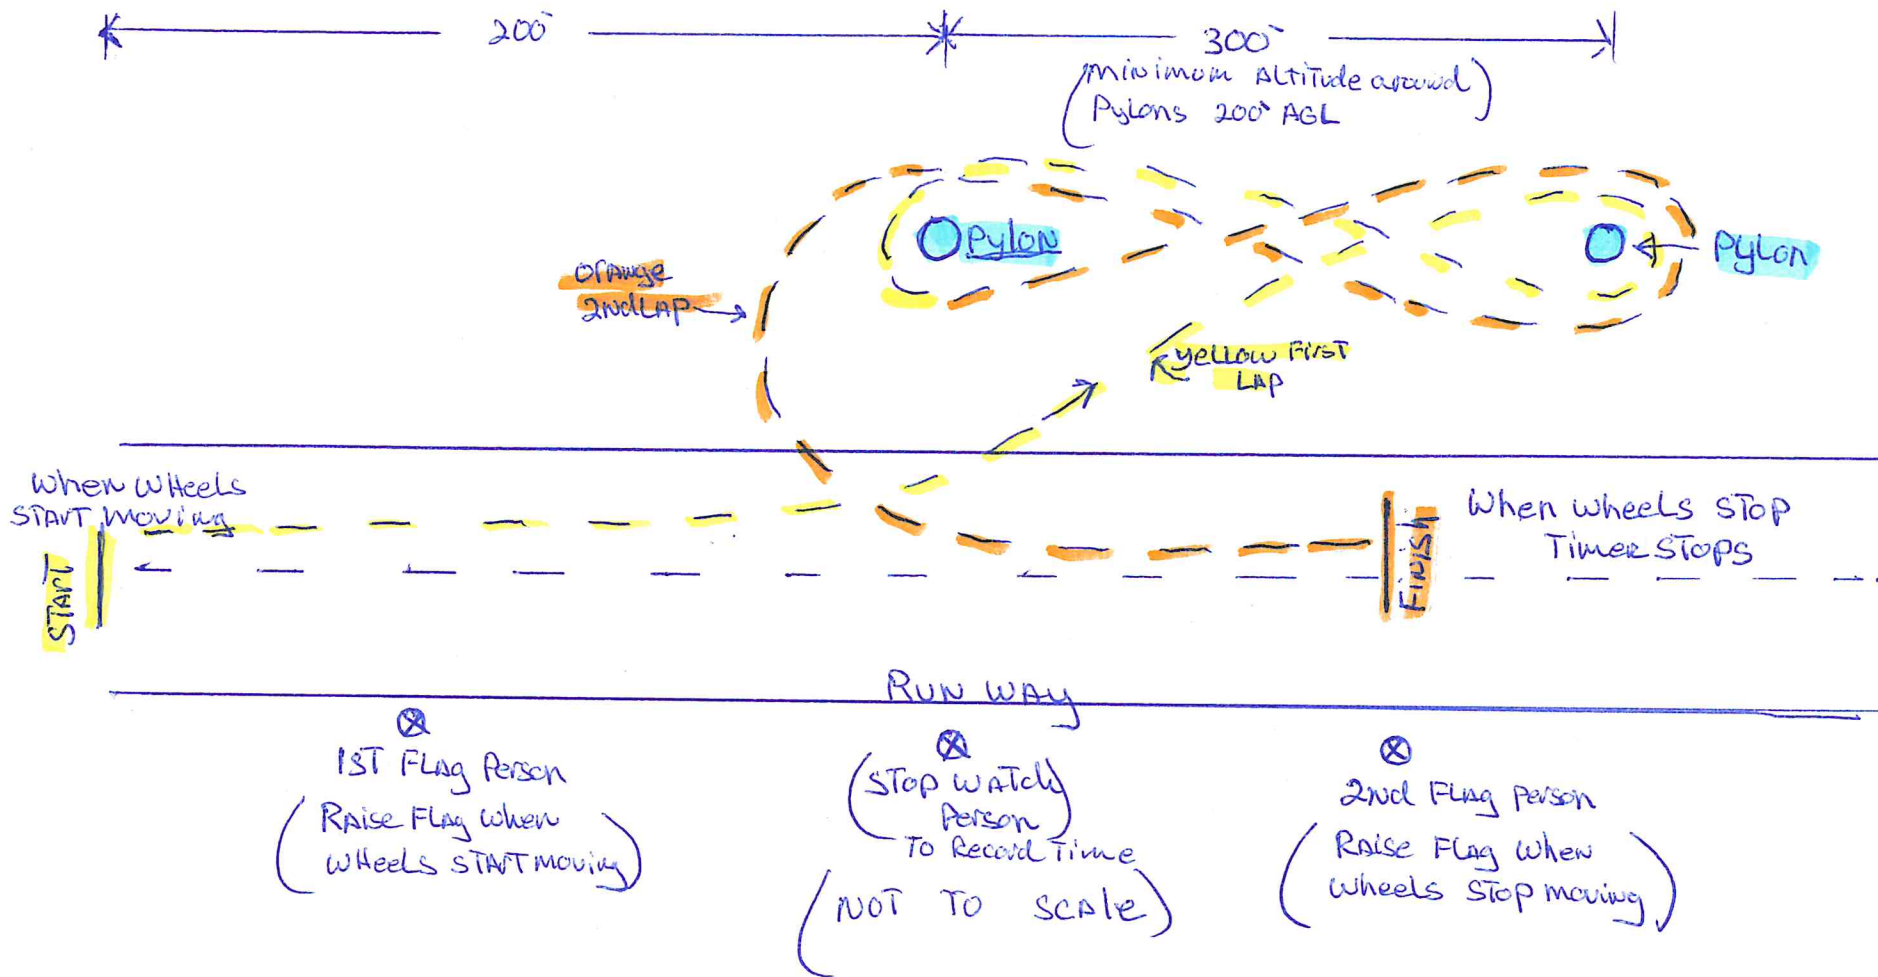 200'
300'
(Minimum Altitude around
Pylons 200' AGL)
Pylon
Pylon
Orange
2nd LAP
Yellow First
LAP
When Wheels
START Moving
START
When wheels STOP
Timer STOPS
Finish
Run Way
1ST Flag Person
(Raise Flag when
Wheels START moving)
(STOP WATCH
Person)
To Record Time
(NOT TO SCALE)
2nd Flag Person
(Raise Flag when
Wheels STOP moving)